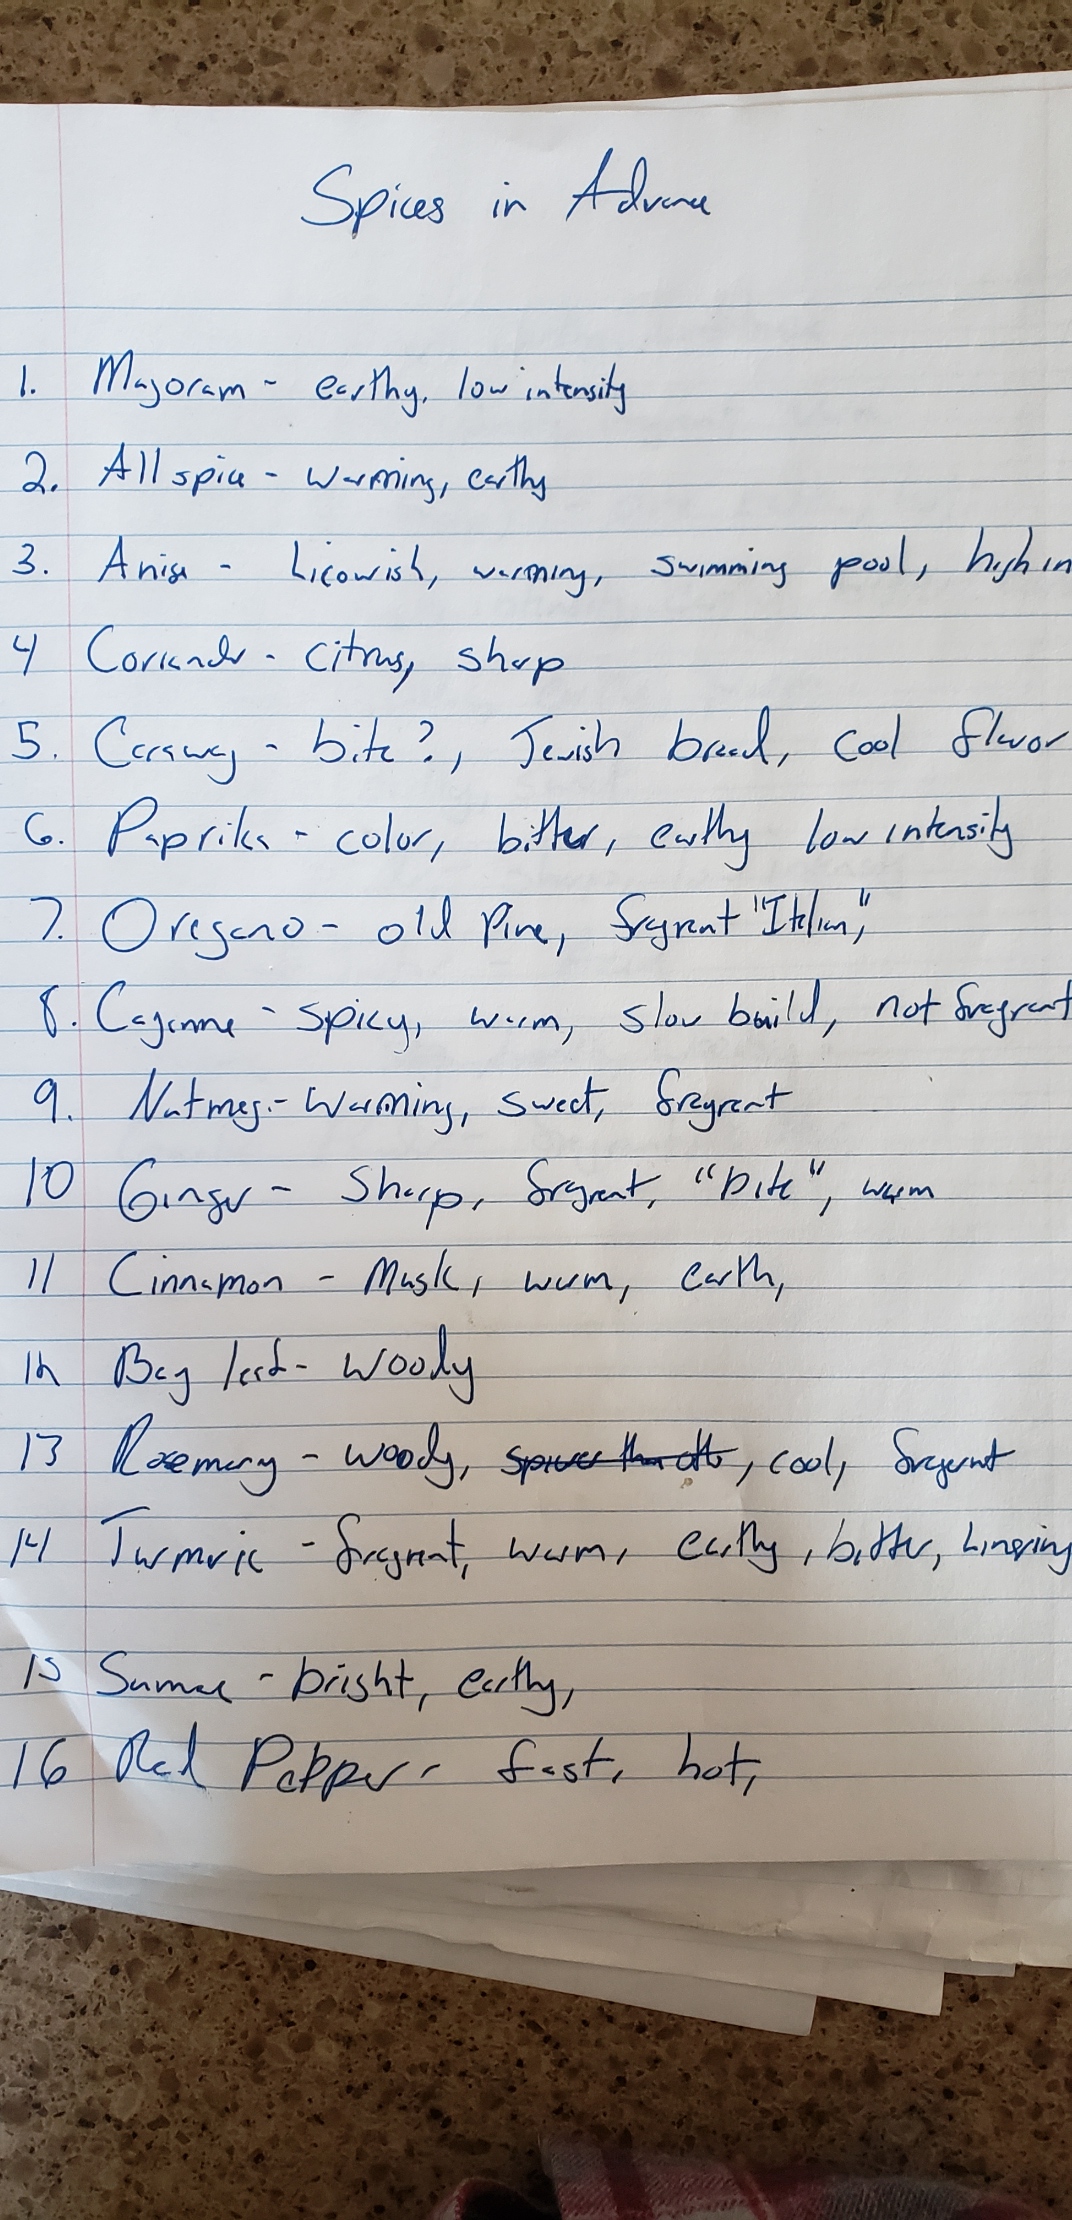 Spices in Advance
1. Majoram - earthy, low intensity
2. All spice - warming, earthy
3. Anise - Licowish, warming, swimming pool, high in
4 Coriander - citrus, sharp
5. Caraway - bite?, Jewish bread, cool flavor
6. Paprika - color, bitter, earthy low intensity
7. Oregano - old pine, fragrant "Italian,"
8. Cayenne - spicy, warm, slow build, not fragrant
9. Nutmeg - warming, sweet, fragrant
10 Ginger - Sharp, fragrant, "bite", warm
11 Cinnamon - Musk, warm, earth,
12 Bay leaf - woody
13 Rosemary - woody, , cool, fragrant
14 Turmeric - fragrant, warm, earthy, bitter, Lingring
15 Sumac - bright, earthy,
16 Red Pepper - fast, hot,